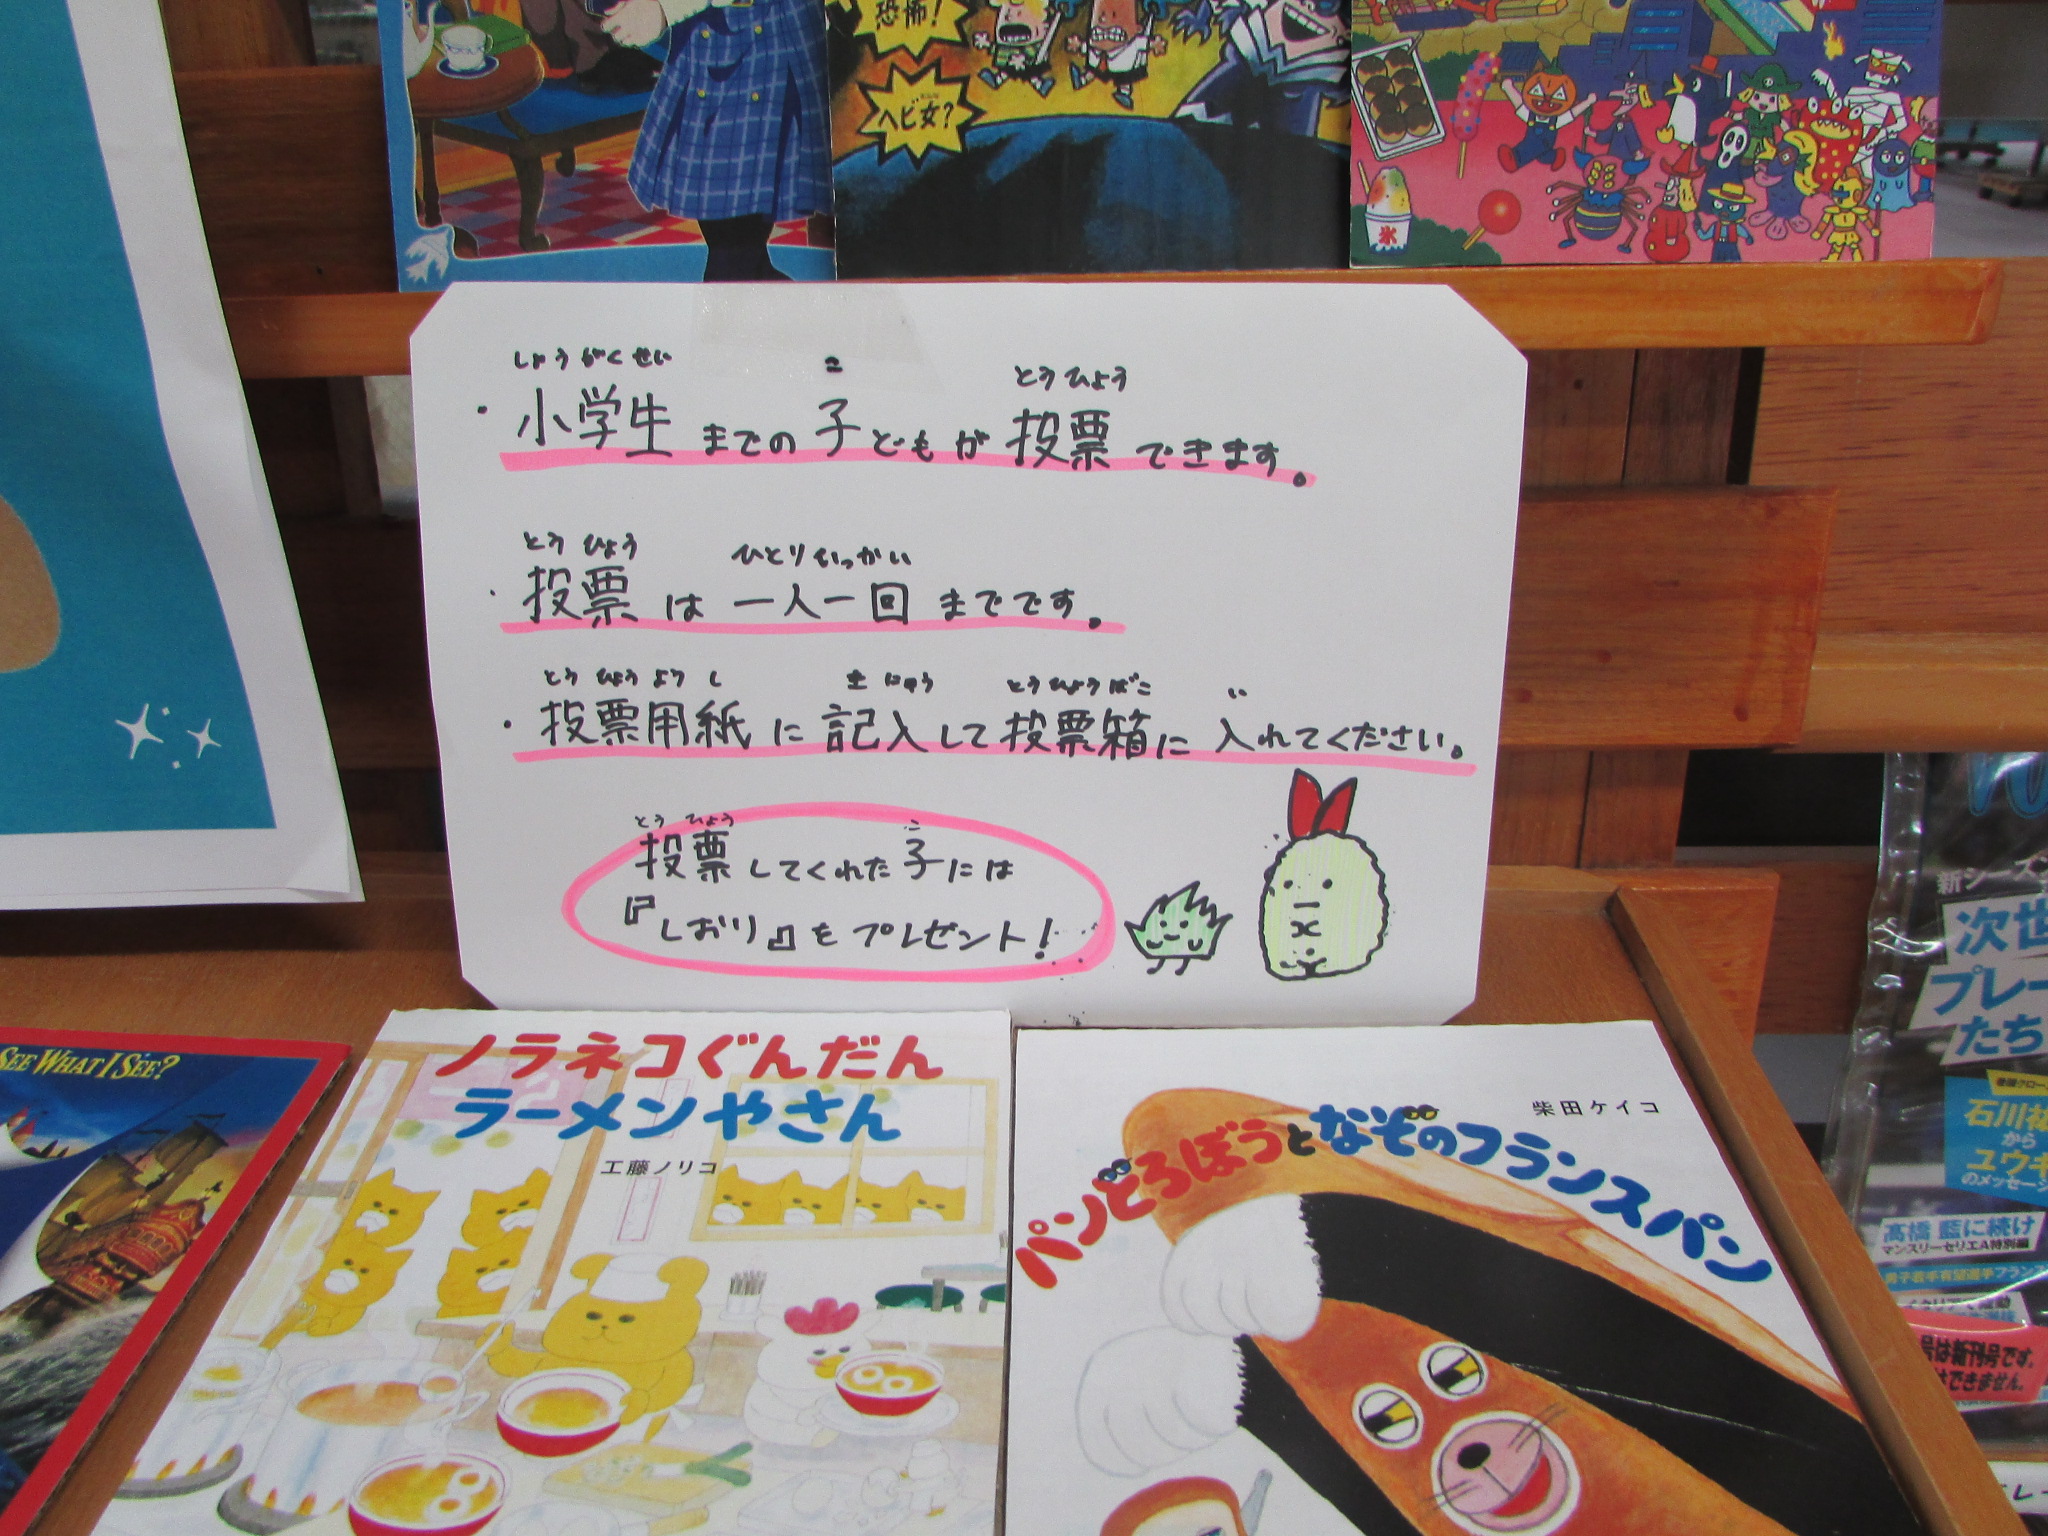 恐怖!
ヘビ女?
氷
しょうがくせい こ とうひょう
・小学生までの子どもが投票できます。
とうひょう ひとりいっかい
・投票は一人一回までです。
とうひょうようし きにゅう とうひょうばこ い
・投票用紙に記入して投票箱に入れてください。
とうひょう こ
投票してくれた子には
『しおり』をプレゼント!
SEE WHAT I SEE?
ノラネコぐんだん
ラーメンやさん
工藤ノリコ
柴田ケイコ
パンどろぼうとなぞのフランスパン
新シーズン
次世
プレー
たち
石川祐
から
ユウキ
のメッセージ
髙橋 藍に続け
マンスリーセリエA特別編
号は新刊号です。
はできません。